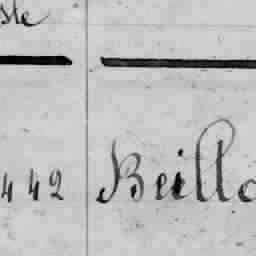 ste
442 Beillo